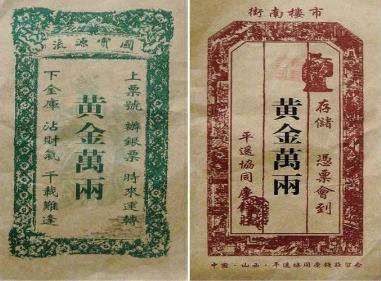 國寶源流
上票號 辦銀票 時來運轉
黃金萬兩
下金庫 沾財氣 千載難逢
市樓南街
存儲 憑票會到
黃金萬兩
平遙協同慶錢莊
中國·山西·平遙協同慶錢